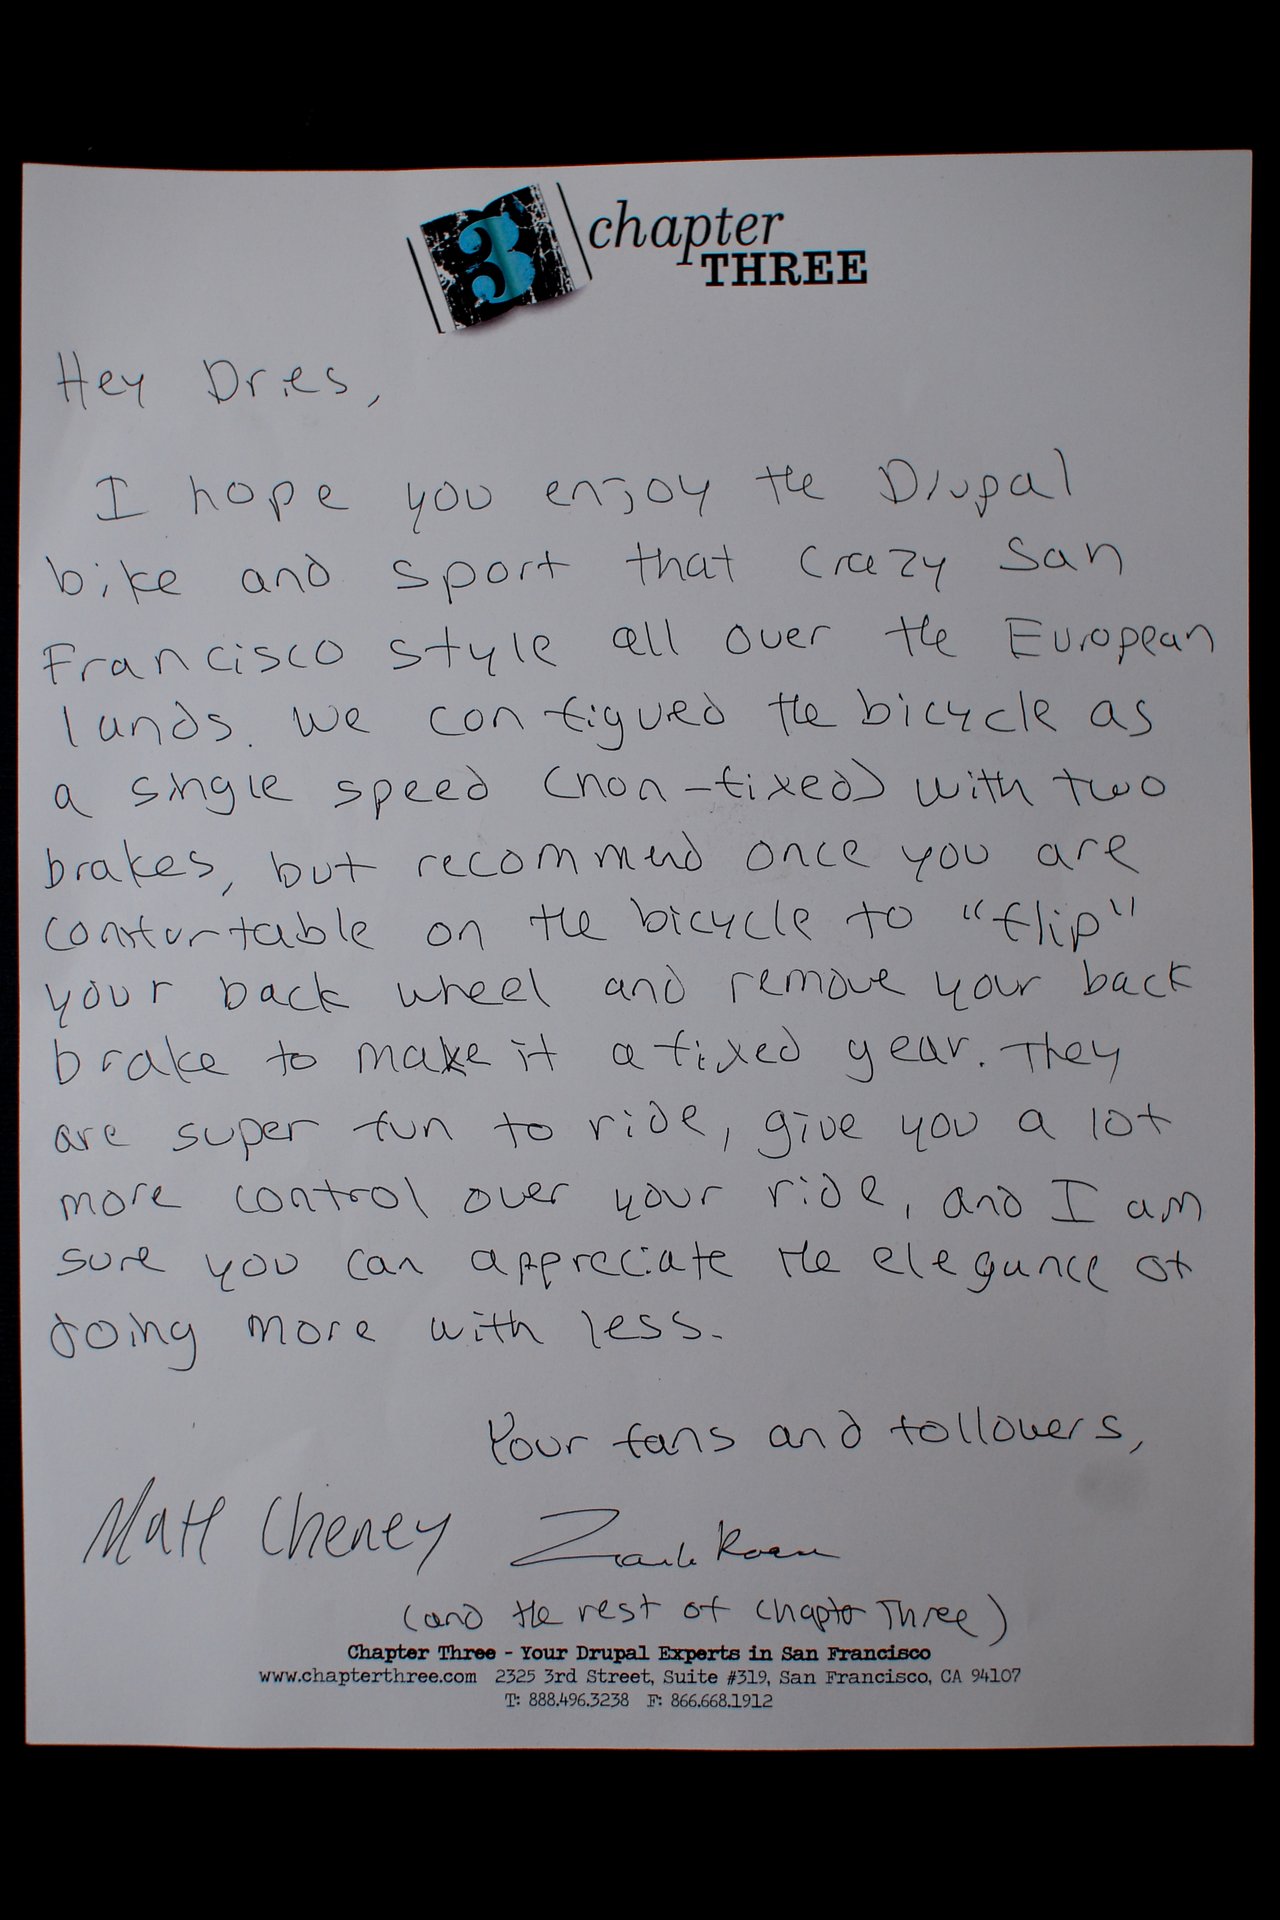 3
chapter
THREE
Hey Dries,
I hope you enjoy the Drupal
bike and sport that crazy San
Francisco style all over the European
lands. We configued the bicycle as
a single speed (non-fixed) with two
brakes, but recommend once you are
comfurtable on the bicycle to "flip"
your back wheel and remove your back
brake to make it a fixed year. They
are super fun to ride, give you a lot
more control over your ride, and I am
sure you can appreciate the elegance of
doing more with less.
Your fans and followers,
Matt Cheney Zack Rosen
(and the rest of Chapter Three)
Chapter Three - Your Drupal Experts in San Francisco
www.chapterthree.com 2325 3rd Street, Suite #319, San Francisco, CA 94107
T: 888.496.3238 F: 866.668.1912